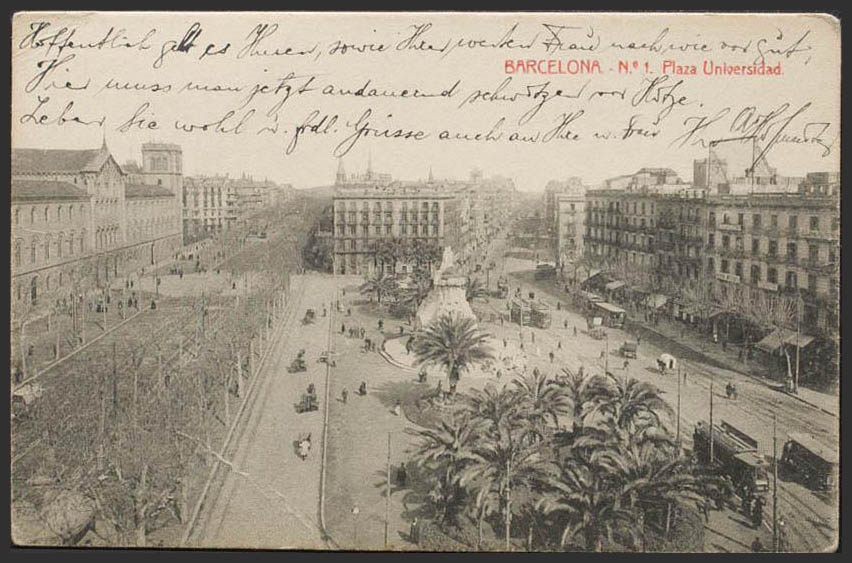 Hoffentlich geht es Ihnen, sowie Ihrer werten Frau nach wie vor gut,
BARCELONA. - N.º 1. Plaza Universidad.
Hier muss man jetzt andauernd schwitzen vor Hitze.
Leben Sie wohl u. frdl. Grüsse auch an Ihre w. Frau Ihr